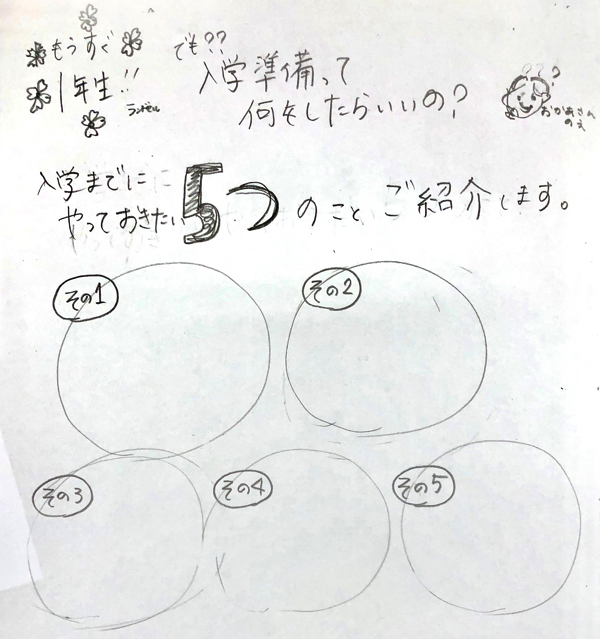 もうすぐ
1年生!!
ランドセル
でも??
入学準備って
何をしたらいいの?
???
おかあさん
のえ
入学までに
やっておきたい5つのことご紹介します。
その1
その2
その3
その4
その5